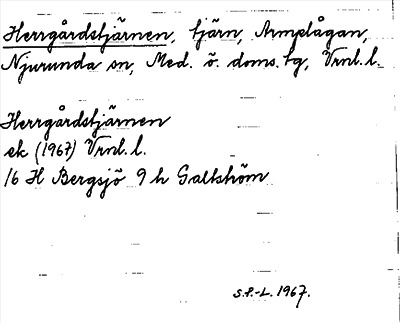 Herrgårdstjärnen, tjärn, Armplågan,
Njurunda sn, Med. ö. doms. tg, Vrnl. l.
Herrgårdstjärnen
ek (1967) Vrnl. l.
16 H Bergsjö 9 h Galtström
S.P.-L. 1967.